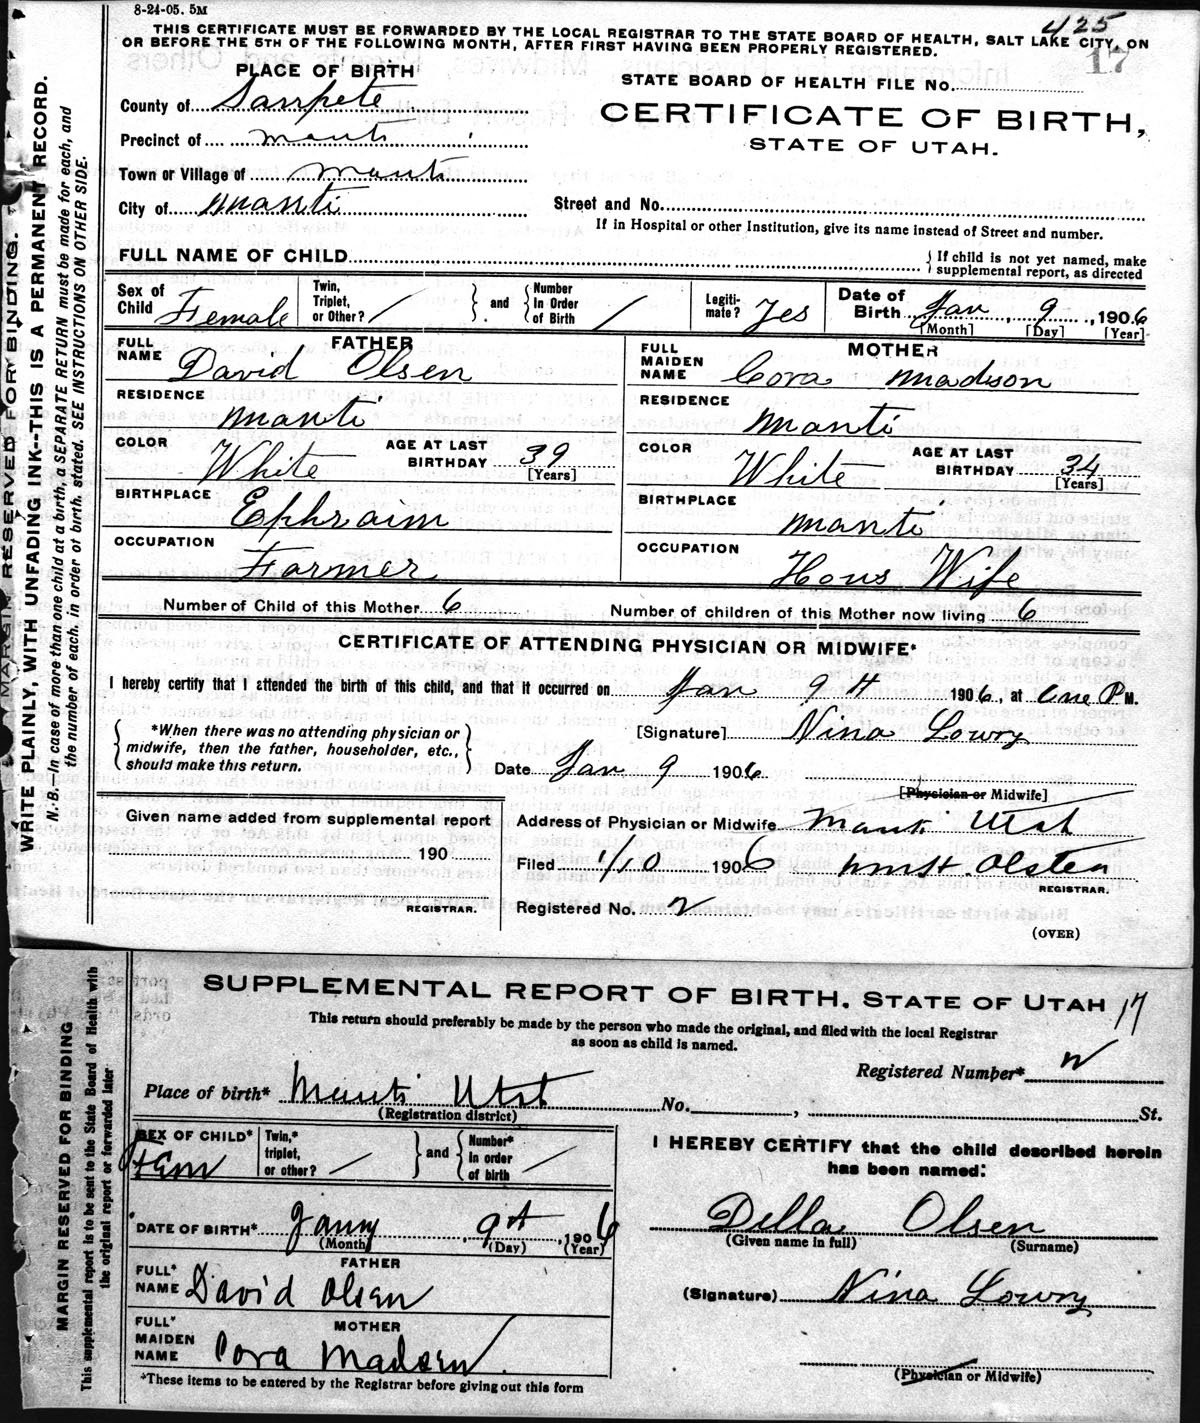 8-24-05. 5M
425
THIS CERTIFICATE MUST BE FORWARDED BY THE LOCAL REGISTRAR TO THE STATE BOARD OF HEALTH, SALT LAKE CITY, ON
OR BEFORE THE 5TH OF THE FOLLOWING MONTH, AFTER FIRST HAVING BEEN PROPERLY REGISTERED.
17
PLACE OF BIRTH
STATE BOARD OF HEALTH FILE No.
County of Sanpete
CERTIFICATE OF BIRTH,
STATE OF UTAH.
Precinct of Manti
Town or Village of Manti
City of Manti
Street and No.
If in Hospital or other Institution, give its name instead of Street and number.
FULL NAME OF CHILD
{If child is not yet named, make
supplemental report, as directed
Sex of Child Female
Twin, Triplet, or Other? /
} and {
Number In Order of Birth /
Legiti-mate? Yes
Date of Birth Jan 9, 1906
[Month] [Day] [Year]
FATHER
FULL NAME David Olsen
MOTHER
FULL MAIDEN NAME Cora Madson
RESIDENCE Manti
RESIDENCE Manti
COLOR White AGE AT LAST BIRTHDAY 39 [Years]
COLOR White AGE AT LAST BIRTHDAY 34 [Years]
BIRTHPLACE Ephraim
BIRTHPLACE Manti
OCCUPATION Farmer
OCCUPATION Hous Wife
Number of Child of this Mother 6
Number of children of this Mother now living 6
CERTIFICATE OF ATTENDING PHYSICIAN OR MIDWIFE*
I hereby certify that I attended the birth of this child, and that it occurred on Jan 9 1906, at one P M.
{*When there was no attending physician or
midwife, then the father, householder, etc.,
should make this return.}
[Signature] Nina Lowry
Date Jan 9 1906
[Physician or Midwife]
Given name added from supplemental report
190
REGISTRAR.
Address of Physician or Midwife Manti Utah
Filed 1/10 1906
REGISTRAR.
Registered No. 2
(OVER)
MARGIN RESERVED FOR BINDING.
WRITE PLAINLY, WITH UNFADING INK--THIS IS A PERMANENT RECORD.
N. B.—In case of more than one child at a birth, a SEPARATE RETURN must be made for each, and
the number of each, in order of birth, stated. SEE INSTRUCTIONS ON OTHER SIDE.
SUPPLEMENTAL REPORT OF BIRTH. STATE OF UTAH 17
This return should preferably be made by the person who made the original, and filed with the local Registrar
as soon as child is named.
Registered Number* 2
Place of birth* Manti Utah No. , St.
(Registration district)
SEX OF CHILD* Fem
Twin,* triplet, or other? /
} and {
Number* In order of birth /
I HEREBY CERTIFY that the child described herein
has been named:
DATE OF BIRTH* , 1906
(Month) (Day) (Year)
Della Olsen
(Given name in full) (Surname)
FATHER
FULL* NAME David Olsen
(Signature) Nina Lowry
MOTHER
FULL* MAIDEN NAME Cora Madsen
(Physician or Midwife)
*These items to be entered by the Registrar before giving out this form
MARGIN RESERVED FOR BINDING
This supplemental report is to be sent to the State Board of Health with
the original report or forwarded later